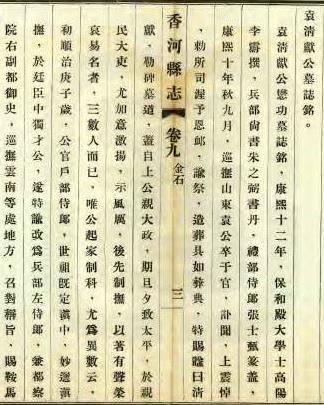 袁清獻公墓誌銘。
袁清獻公懋功墓誌銘，康熙十二年，保和殿大學士高陽
李霨撰，兵部尚書朱之弼書丹，禮部侍郎張士甄篆蓋，
康熙十年秋九月，巡撫山東袁公卒于官，訃聞，上震悼
，勅所司渥予恩卹，諭祭，遣葬具如彝典，特賜謚曰清
香河縣志 卷九 金石 三
獻，勒碑墓道，蓋自上公親大政，期旦夕致太平，於親
民大吏，尤加意激揚，示風厲，後先制撫，以著有聲榮
哀易名者，三數人而已，唯公起家制科，尤爲異數云，
初順治庚子歲，公官戶部侍郎，世祖旣定滇中，妙選滇
撫，於廷臣中獨才公，遂特諭改爲兵部左侍郎，兼都察
院右副都御史，巡撫雲南等處地方，召對稱旨，賜鞍馬